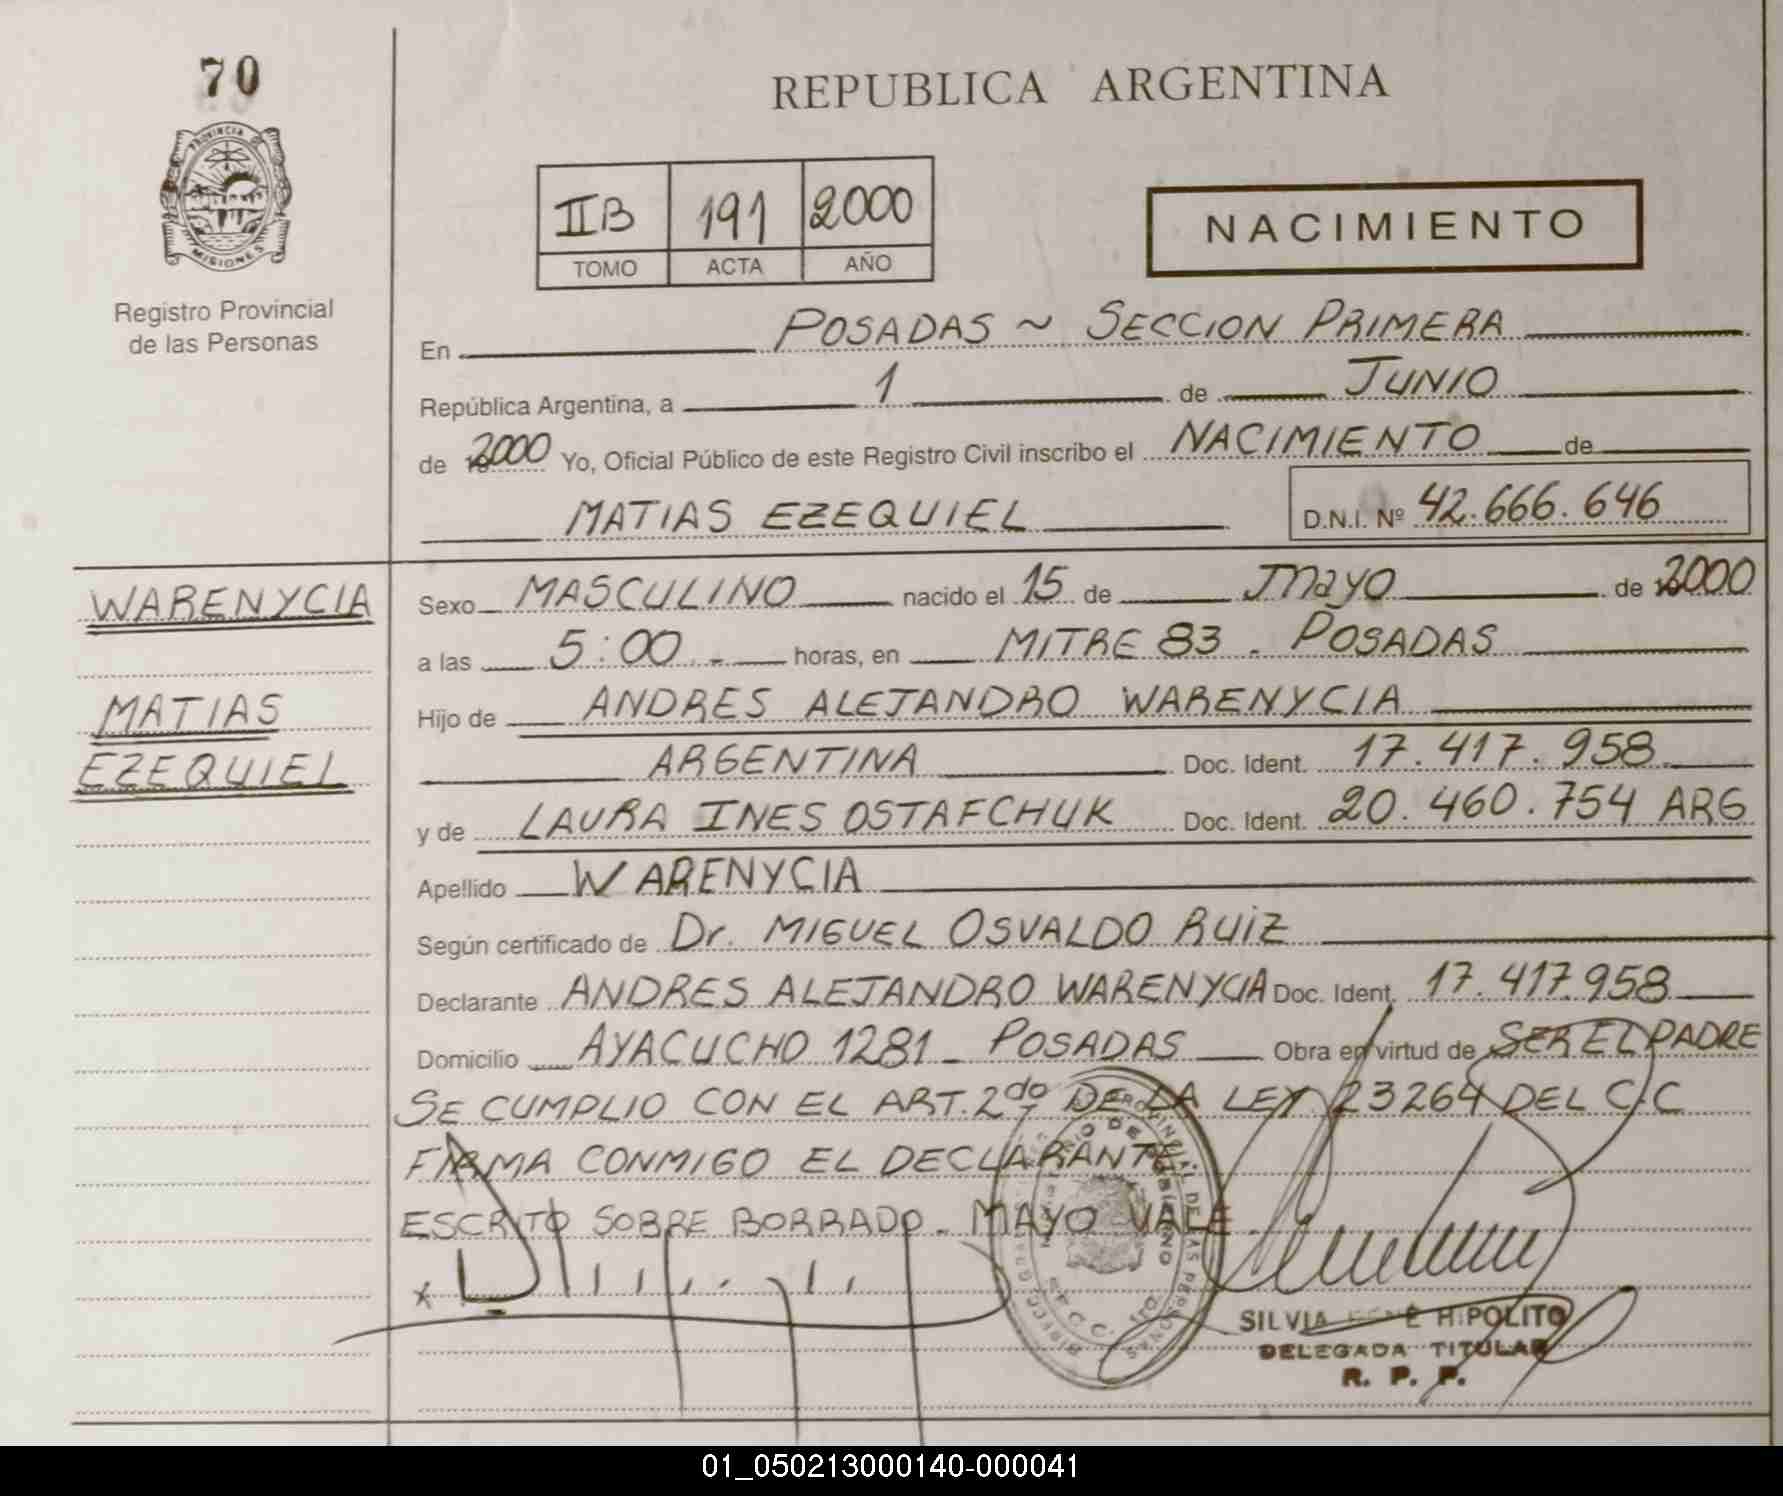 70
REPUBLICA ARGENTINA
PROVINCIA
MISIONES
Registro Provincial
de las Personas
IIB 191 2000
TOMO ACTA AÑO
NACIMIENTO
En POSADAS ~ SECCION PRIMERA
República Argentina, a 1 de JUNIO
de 2000 Yo, Oficial Público de este Registro Civil inscribo el NACIMIENTO de
MATIAS EZEQUIEL D.N.I. Nº 42.666.646
WARENYCIA
MATIAS
EZEQUIEL
Sexo MASCULINO nacido el 15 de Mayo de 2000
a las 5:00 - horas, en MITRE 83 - POSADAS
Hijo de ANDRES ALEJANDRO WARENYCIA
ARGENTINA Doc. Ident. 17.417.958
y de LAURA INES OSTAFCHUK Doc. Ident. 20.460.754 ARG
Apellido WARENYCIA
Según certificado de Dr. MIGUEL OSVALDO RUIZ
Declarante ANDRES ALEJANDRO WARENYCIA Doc. Ident. 17.417.958
Domicilio AYACUCHO 1281 - POSADAS Obra en virtud de SER EL PADRE
SE CUMPLIO CON EL ART. 2do DE LA LEY 23264 DEL C.C
FIRMA CONMIGO EL DECLARANTE.
ESCRITO SOBRE BORRADO - MAYO VALE.
SILVIA HIPOLITO
DELEGADA TITULAR
R. P. P.
01_050213000140-000041